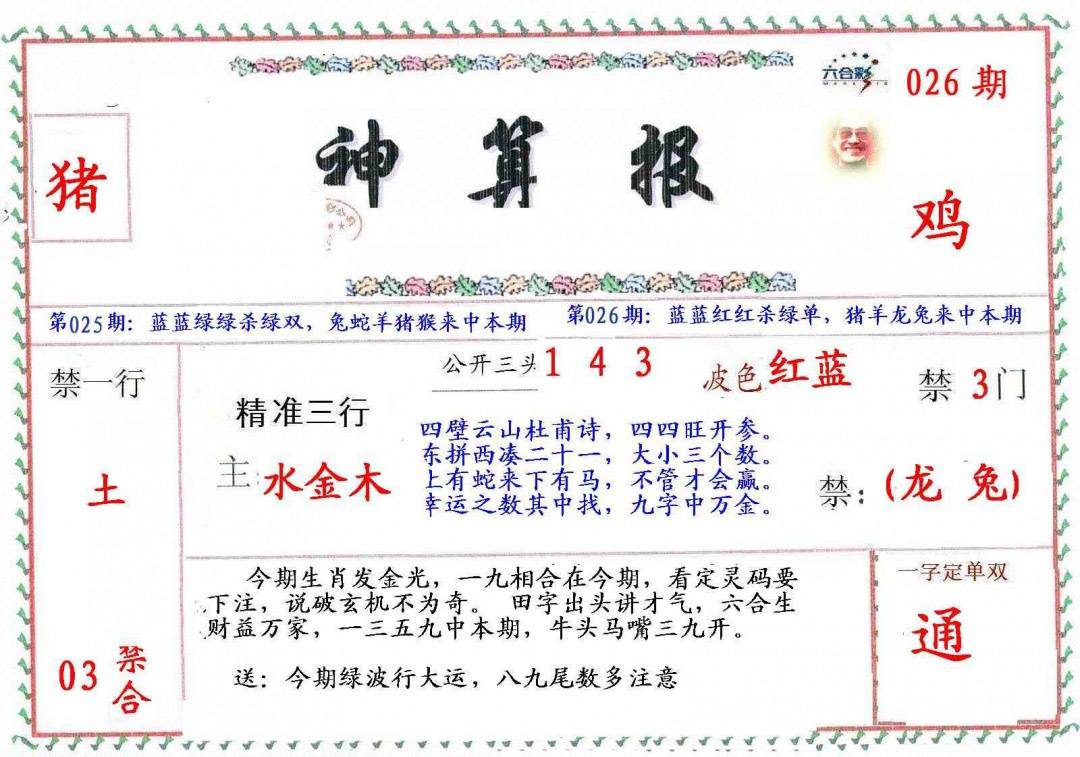 六合彩
026期
神算报
猪
鸡
第025期：蓝蓝绿绿杀绿双，兔蛇羊猪猴来中本期
第026期：蓝蓝红红杀绿单，猪羊龙兔来中本期
禁一行
土
03 禁合
精准三行
主：水金木
公开三头 1 4 3
波色 红蓝
四壁云山杜甫诗，四四旺开参。
东拼西凑二十一，大小三个数。
上有蛇来下有马，不管才会赢。
幸运之数其中找，九字中万金。
禁3门
禁：(龙 兔)
今期生肖发金光，一九相合在今期，看定灵码要
下注，说破玄机不为奇。 田字出头讲才气，六合生
财益万家，一三五九中本期，牛头马嘴三九开。
送：今期绿波行大运，八九尾数多注意
一字定单双
通